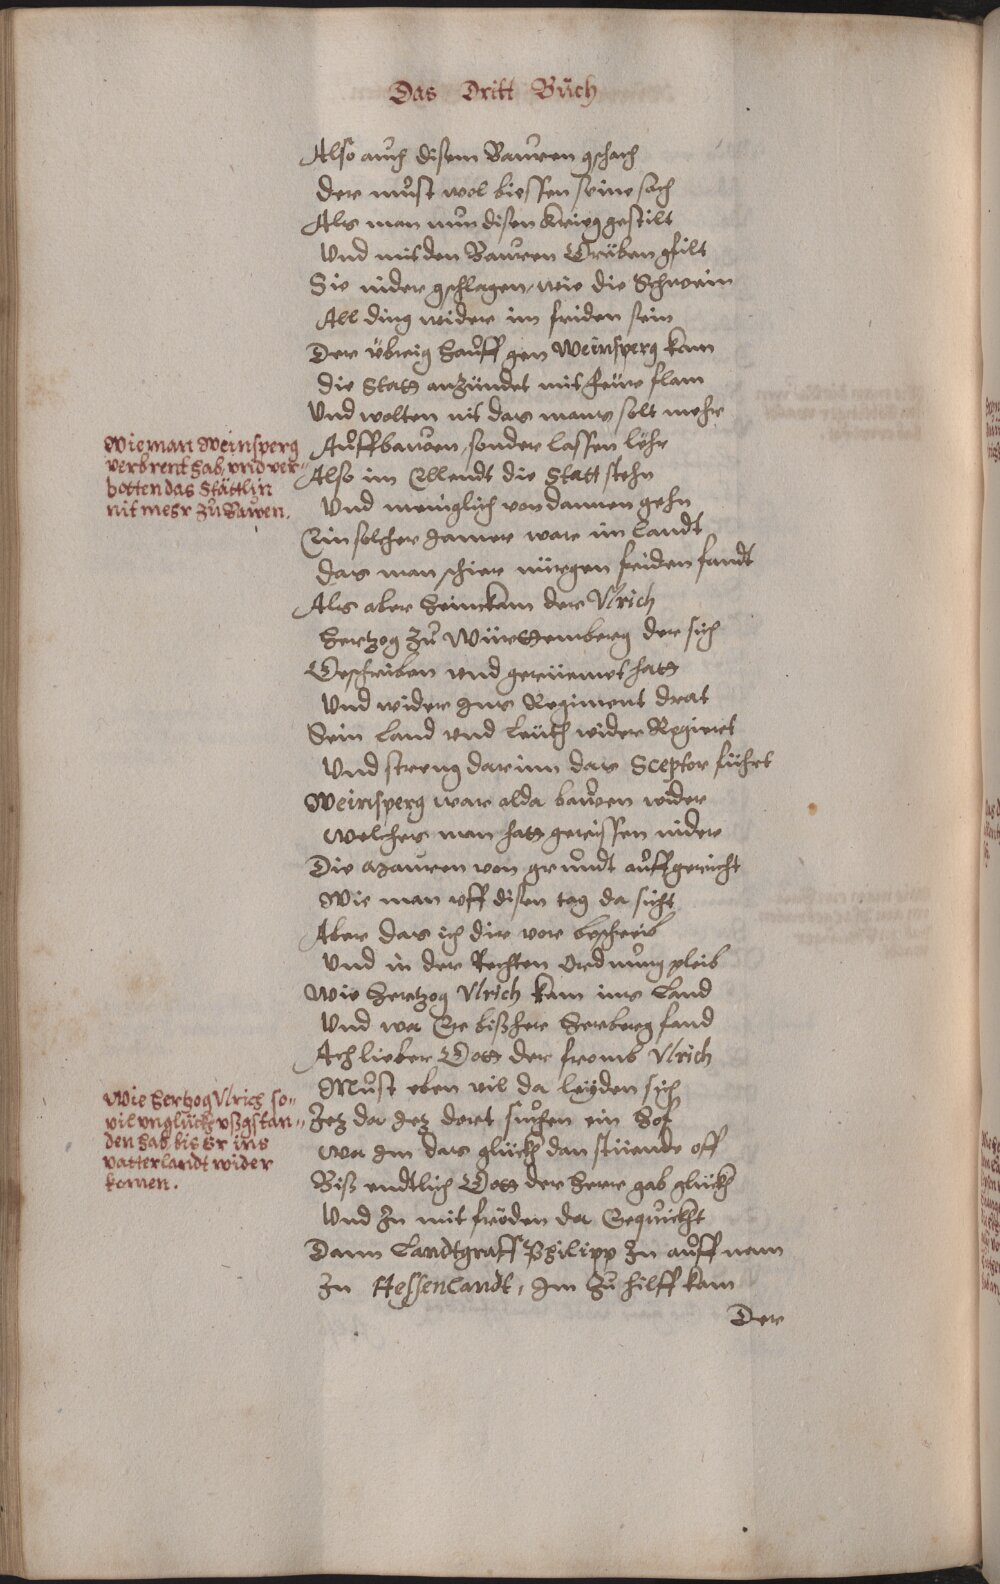 Das Dritt Büch
Also auch disem Bauren gschach
Der must wol biessen seine sach
Als man nun disen Krieg gestilt
Und mit den Bauren Grüben gfilt
Sie nider gschlagen, wie die Schwein
All ding wider im friden sein
Der übrig Hauff gen Weinsperg kam
Die Statt anzündet mit feurs flam
Und wolten nit das mans solt mehr
Auffbauwen, sonder lassen löhr
Wie man Weinsperg
verbrent hab, vnd ver-
botten das Stättlin
nit mehr zu Bawen.
Also im Ellendt die Statt stehn
Und meniglich von dannen gehn
Ein solcher Jamer war im Landt
Das man schier nürgen friden fandt
Als aber heimkam der Vlrich
Hertzog zu Württemberg der sich
Geschriben vnd gerüemet hatt
Und wider Ins Regiment drat
Sein Land vnd Leuth wider Regiert
Und streng darinn das Scepter führt
Weinsperg war alda bauwen wider
Welches man hatt gerissen nider
Die Mauren von grundt auffgericht
Wie man vff disen tag da sicht
Aber das ich dir vor beschreib
Und in der Rechten Ordnung pleib
Wie Hertzog Vlrich kam ins Land
Und wa Er bißher Herberg fand
Ach lieber Gott der fromb Vlrich
Must eben vil da leyden sich
Wie Hertzog Vlrich so-
vil vnglück vßgstan-
den hab bis Er ins
vatterlandt wider
komen.
Jetz da Jetz dort suchen ein Hof
Wa Im das glück dan stüende off
Biß endtlich Gott der Herr gab glück
Und In mit fröden da Erquickht
Dann Landtgraff Philipp In auff nam
In Hessenlandt, Im zu hilff kam
Der